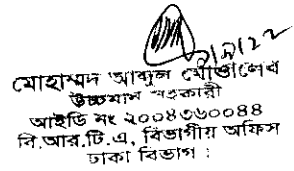 ২১/৯/২২
মোহাম্মদ আব্দুল মোত্তালেব
উচ্চমান সহকারী
আইডি নং ২০০৪৩৬০০৪৪
বি.আর.টি.এ, বিভাগীয় অফিস
ঢাকা বিভাগ।